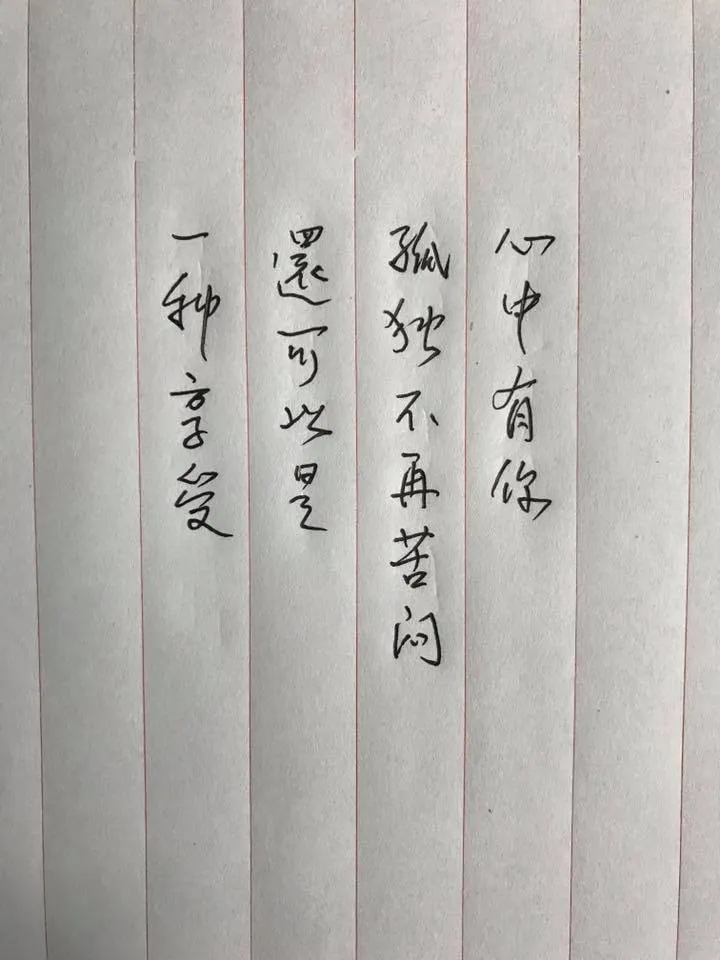 心中有你
孤独不再苦闷
還可以是
一种享受